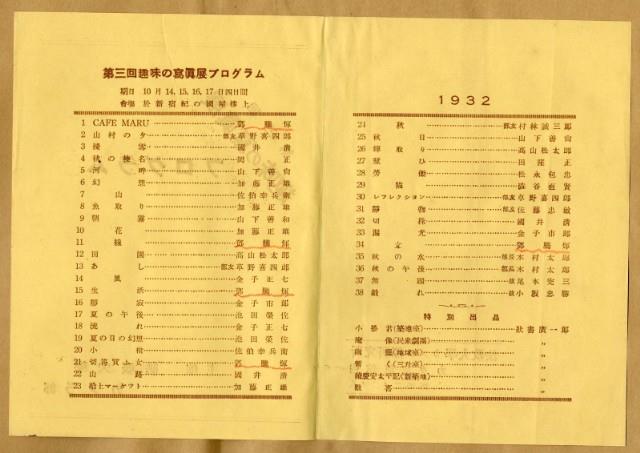 第三回趣味の寫眞展プログラム
期日 10月14,15,16,17日四日間
會場 於新宿紀の國屋樓上
1 CAFE MARU 鄧騰煇
2 山村の夕 部友 草野喜四郎
3 國井清
4 秋の榛名 正
5 河畔 山下善
6 幻想 加藤正雄
7 山 佐伯幸兵衞
8 魚取り 加藤正雄
9 朝霧 山下善和
10 花 加藤正雄
11 鄧騰煇
12 田園 高山松太郎
13 あし 部友 草野喜四郎
14 風 金子正七
15 生活 鄧騰煇
16 靜寂 金子市郎
17 夏の午後 池田榮佐
18 流れ 金子正七
19 夏の日の幻想 池田榮佐
20 小樹 佐伯幸兵衞
21 鄧騰煇
22 山路 國井清
23 船上マーケット 加藤正雄
1932
24 秋 部友 村林誠三郎
25 秋日 山下善
26 蟬取り 高山松太郎
27 正
28 勞働 松永包忠
29 澁谷直賢
30 レフレクション 部友 草野喜四郎
31 靜物 部友 佐藤忠敏
32 切花 國井清
33 陽光 金子市郎
34 鄧騰煇
35 秋の水 部長 木村太郎
36 秋の午後 部長 木村太郎
37 無題 尾本兖三
38 戯れ 小飯忠勝
特別出品
小 君(築地座) 獣書廣一郎
像(民衆劇團) 〃
(地球座) 〃
く(三升座) 〃
慶安太平記(新築地) 〃
〃